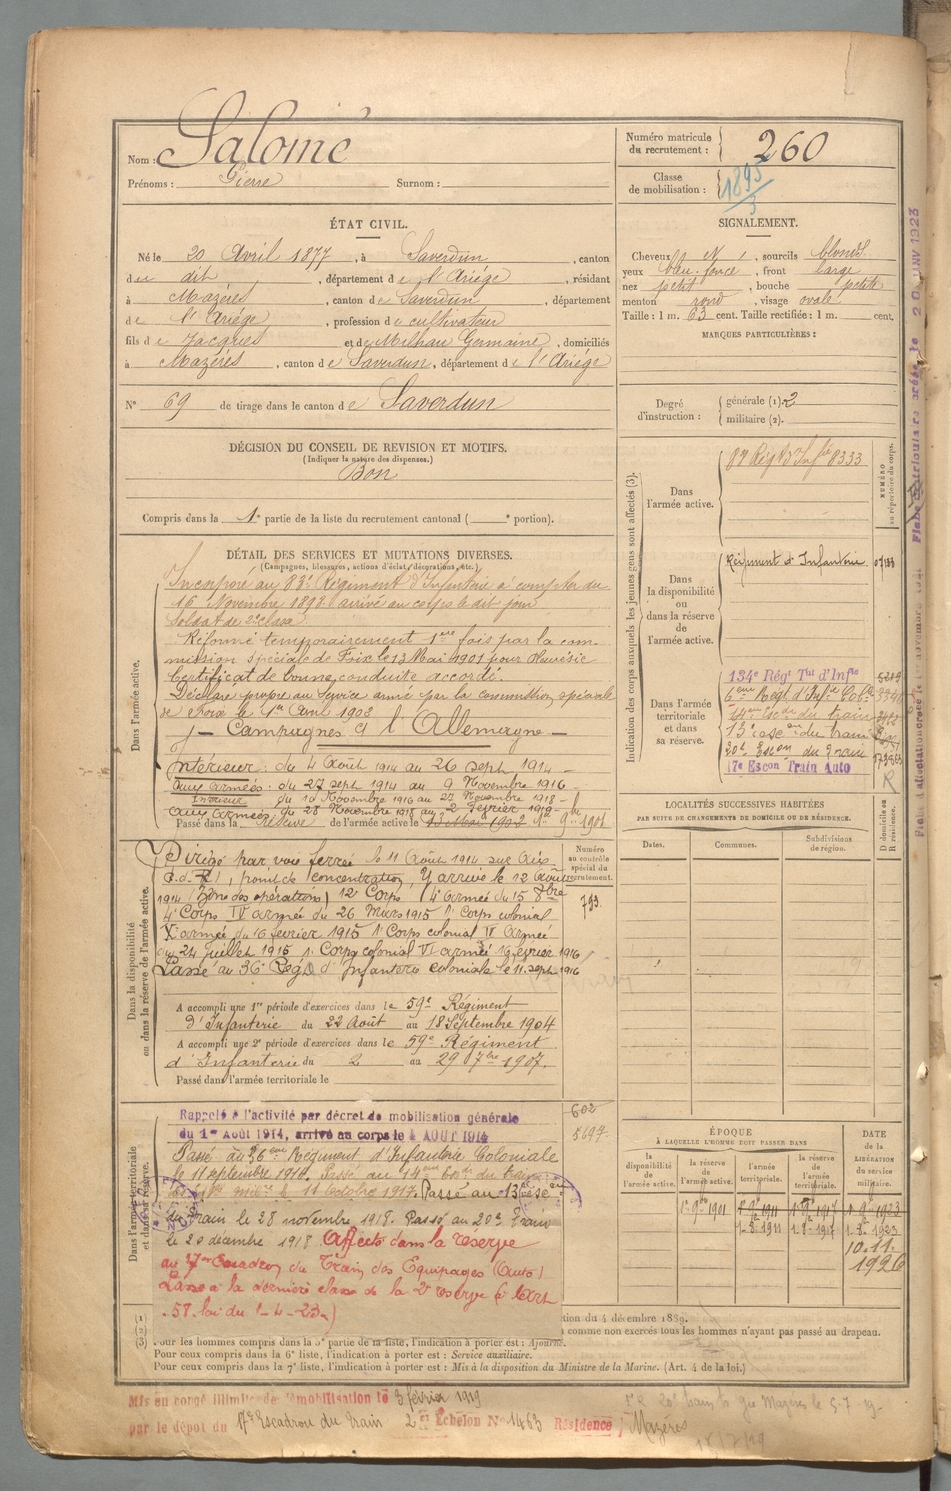 Nom : Salomé
Prénoms : Pierre Surnom :
Numéro matricule du recrutement : 260
Classe de mobilisation : 1895/3
ÉTAT CIVIL.
Né le 20 Avril 1877, à Saverdun, canton
de dit, département de l'Ariége, résidant
à Mazéres, canton de Saverdun, département
de l'Ariége, profession de cultivateur
fils de Jacques et de Milhau Germaine, domiciliés
à Mazéres, canton de Saverdun, département de l'Ariége
N° 69 de tirage dans le canton de Saverdun
SIGNALEMENT.
Cheveux N, sourcils blonds
yeux bleu foncé, front large
nez petit, bouche petite
menton rond, visage ovale
Taille : 1 m. 63 cent. Taille rectifiée : 1 m. cent.
MARQUES PARTICULIÈRES :
Degré d'instruction : générale (1) 2
militaire (2).
DÉCISION DU CONSEIL DE REVISION ET MOTIFS.
(Indiquer la nature des dispenses.)
Bon
Compris dans la 1e partie de la liste du recrutement cantonal ( e portion).
DÉTAIL DES SERVICES ET MUTATIONS DIVERSES.
(Campagnes, blessures, actions d'éclat, décorations, etc.)
Dans l'armée active.
Incorporé au 83e Régiment d'Infanterie à compter du
16 Novembre 1898 arrivé au corps le dit jour
soldat de 2e classe
Réformé temporairement 1ere fois par la com-
mission spéciale de Foix le 13 Mai 1901 pour
Certificat de bonne conduite accordé.
Déclaré propre au Service armé par la commission spéciale
de Foix le 1er Avril 1903
Campagnes c l'Allemagne
Intérieur : du 4 Août 1914 au 26 sept 1914
aux armées : du 27 sept 1914 au 9 Novembre 1916
Intérieur du 10 Novembre 1916 au 27 Novembre 1918
aux armées du 28 Novembre 1918 au 2 Février 1919
Passé dans la réserve de l'armée active le 1er 9bre 1901
Indication des corps auxquels les jeunes gens sont affectés (3).
Dans l'armée active.
8333
NUMÉRO au répertoire du corps.
Dans la disponibilité ou dans la réserve de l'armée active.
Régiment d'Infanterie
Dans l'armée territoriale et dans sa réserve.
134e Régt Tal d'Infie
6eme Regt d'Infie Cole
14eme Escon du train
13e esc on du train
20e Escon du Train
17e Escon Train Auto
R
LOCALITÉS SUCCESSIVES HABITÉES
PAR SUITE DE CHANGEMENTS DE DOMICILE OU DE RÉSIDENCE.
Dates. Communes. Subdivisions de région.
D domicile ou R résidence.
Dans la disponibilité ou dans la réserve de l'armée active.
Numéro au contrôle spécial du recrutement.
793
Dirigé par voie ferrée le 11 Août 1914 sur
point de concentration, y arrive le 12 Août
1914 (Zone des opérations) 12e Corps 4e Armée du 15 8bre
4e Corps IV armée du 26 Mars 1915 1e Corps colonial
X armée du 16 fevrier 1915 1e Corps colonial IV Armée
du 24 juillet 1915 1e Corps colonial VI armée 16 fevrier 1916
Passé au 36e Regt d'Infanterie coloniale le 11 sept 1916
A accompli une 1re période d'exercices dans le 59e Régiment
d'Infanterie du 22 Août au 18 Septembre 1904
A accompli une 2e période d'exercices dans le 59e Régiment
d'Infanterie du 2 au 29 7bre 1907.
Passé dans l'armée territoriale le
Dans l'armée territoriale et dans sa réserve.
602
5697
Rappelé à l'activité par décret de mobilisation générale
du 1er Août 1914, arrivé au corps le 4 AOUT 1914
Passé au 36eme Régiment d'Infanterie Coloniale
le 11 septembre 1916. Passé au 14eme Escon du train
le 11 octobre 1917. Passé au 13e esc on
du train le 28 novembre 1918. Passé au 20e train
le 20 décembre 1918 Affecté dans la réserve
au 17e Escadron du Train des Equipages (Auto)
Classé à la dernière classe de la 2e réserve (Art
58. loi du 1-4-23)
ÉPOQUE
À LAQUELLE L'HOMME DOIT PASSER DANS
la disponibilité de l'armée active. la réserve de l'armée active. l'armée territoriale. la réserve de l'armée territoriale. DATE de la LIBÉRATION du service militaire.
1er 9bre 1901 1er 9bre 1911 1er 9bre 1917 1er 9bre 1923
1-8-1911 1-8-1917 1-8-1923
10.11.1926
(1)
(2)
(3)
tion du 4 décembre 1889.
comme non exercés tous les hommes n'ayant pas passé au drapeau.
Pour les hommes compris dans la 5e partie de la liste, l'indication à porter est : Ajourné.
Pour ceux compris dans la 6e liste, l'indication à porter est : Service auxiliaire.
Pour ceux compris dans la 7e liste, l'indication à porter est : Mis à la disposition du Ministre de la Marine. (Art. 4 de la loi.)
Mis en congé illimité de démobilisation le 3 février 1919
par le dépot du 17e Escadron du train 2e Échelon No 1463 Résidence Mazéres